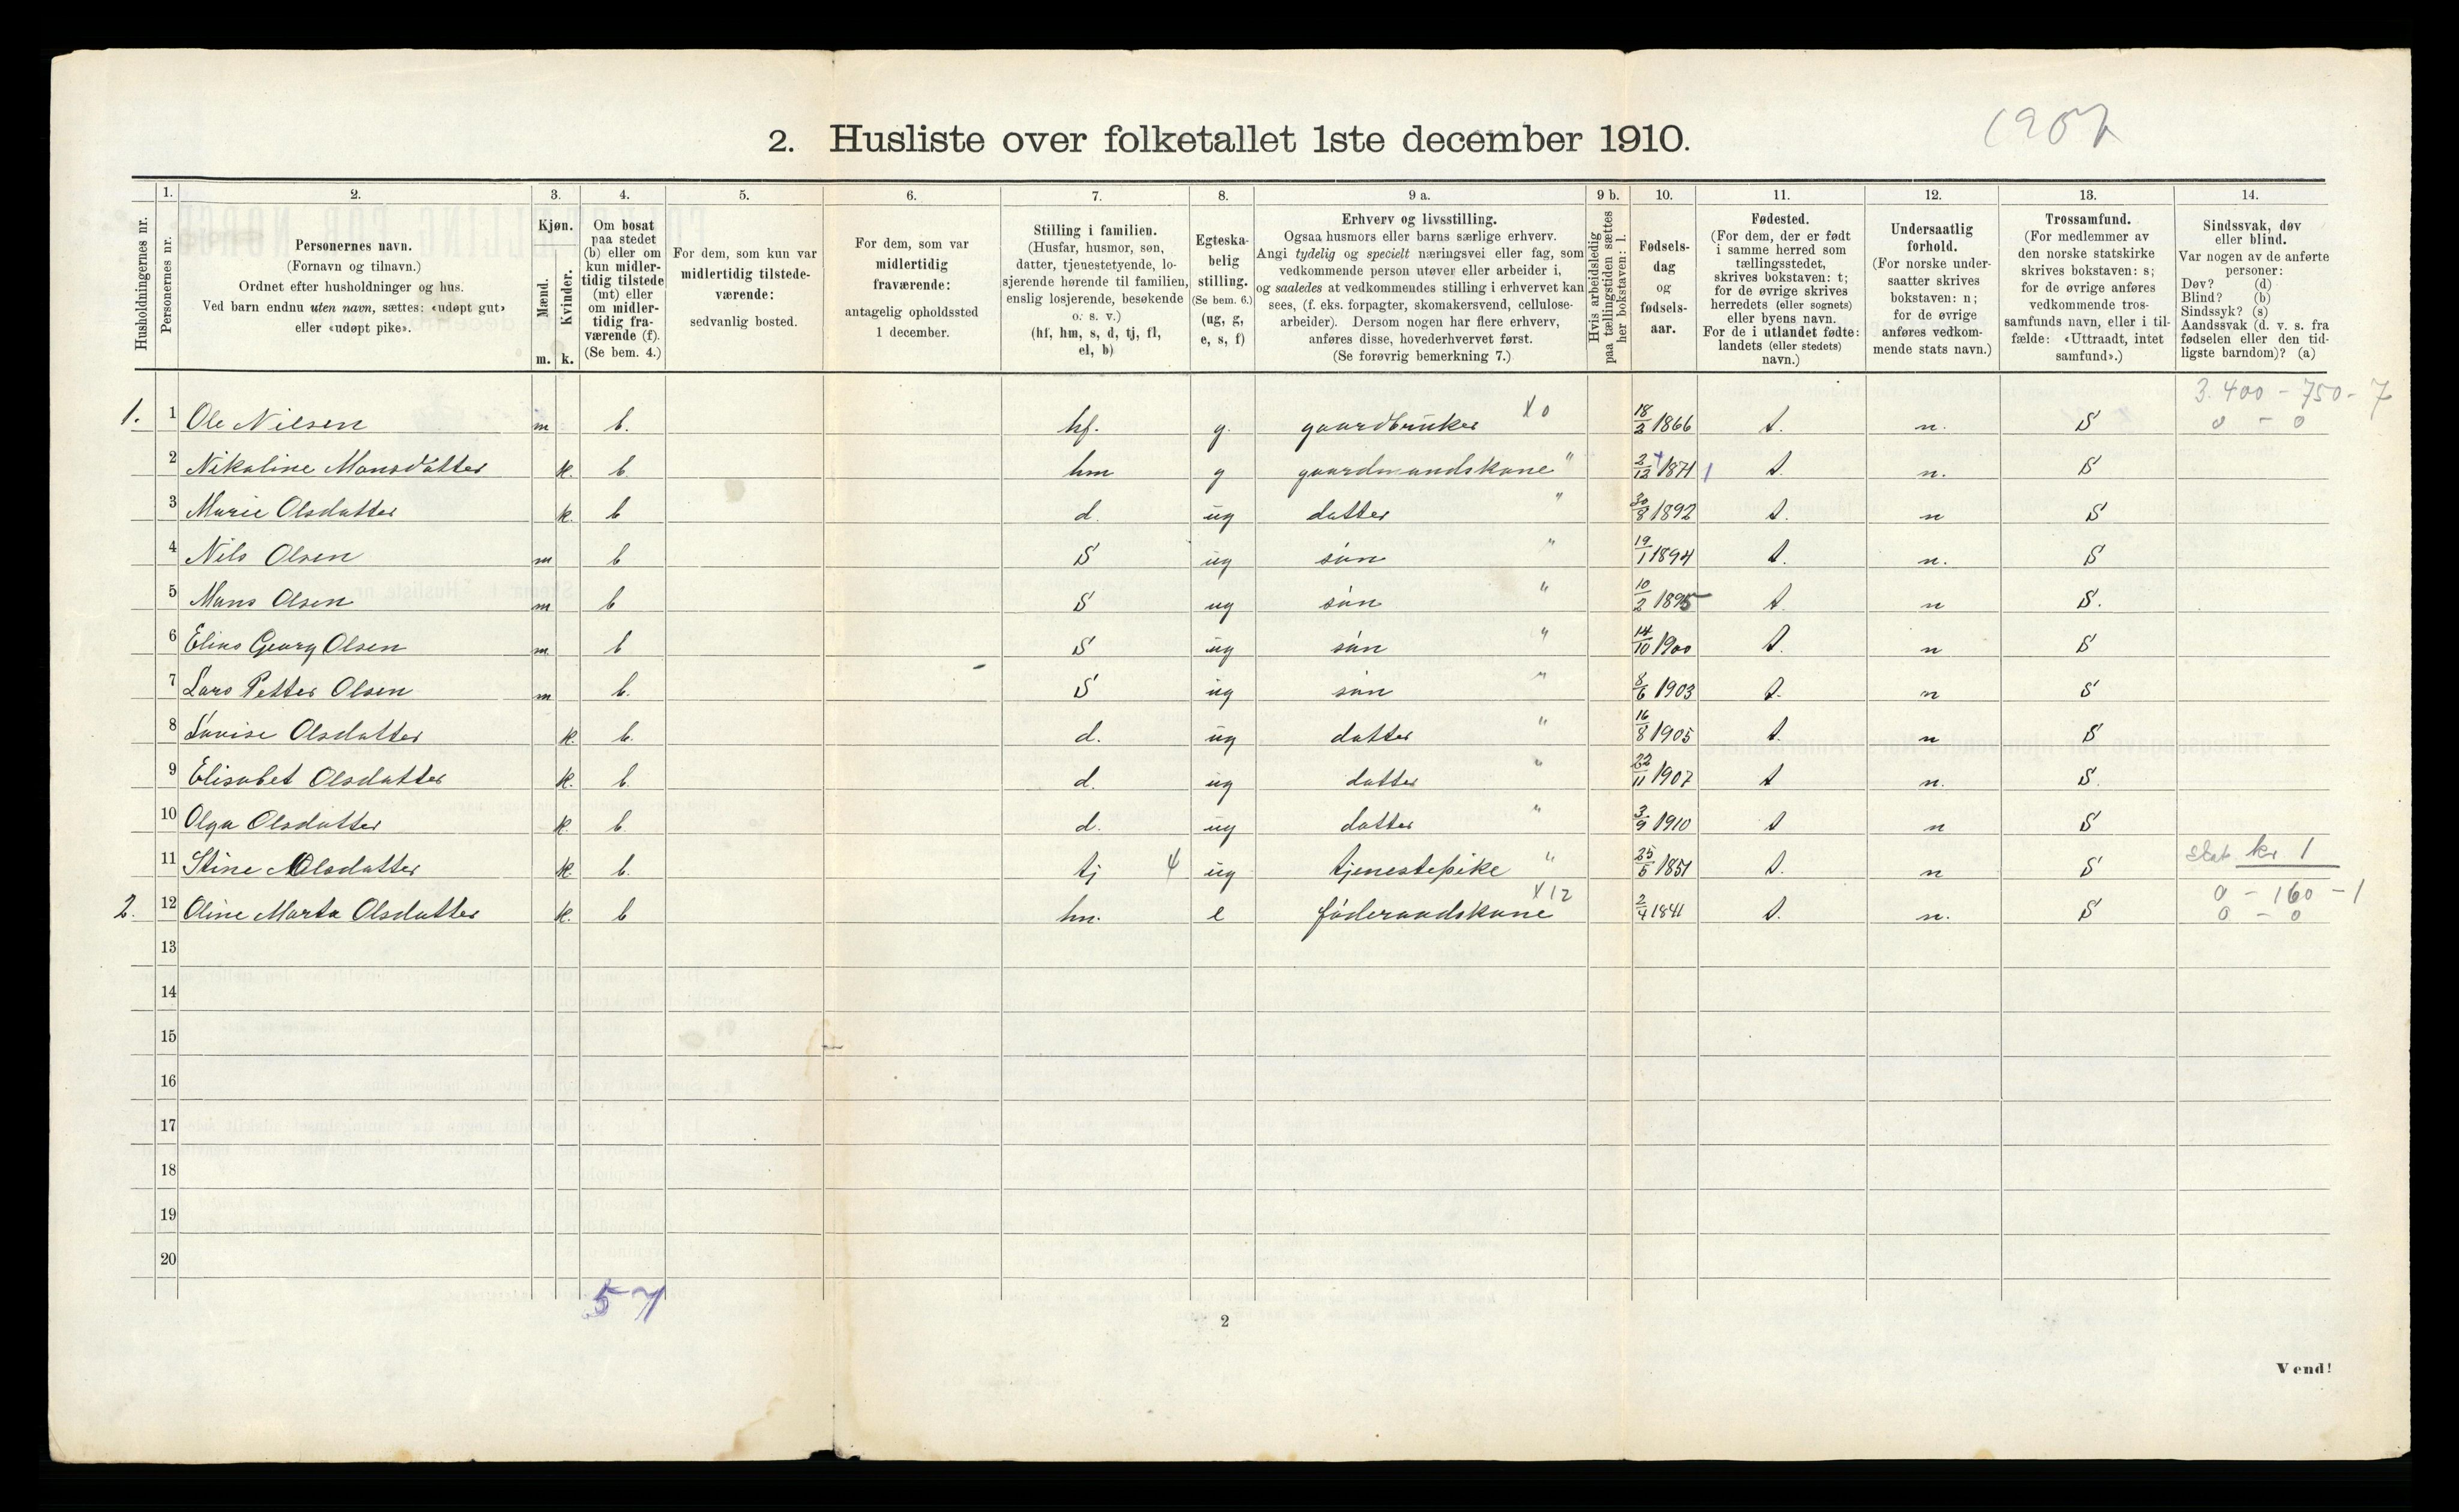 1907
2. Husliste over folketallet 1ste december 1910.
Husholdningernes nr.
1.
Personernes nr.
2.
Personernes navn.
(Fornavn og tilnavn.)
Ordnet efter husholdninger og hus.
Ved barn endnu uten navn, sættes: «udøpt gut»
eller «udøpt pike».
3.
Kjøn.
Mænd.
Kvinder.
m. k.
4.
Om bosat
paa stedet
(b) eller om
kun midler-
tidig tilstede
(mt) eller
om midler-
tidig fra-
værende (f).
(Se bem. 4.)
5.
For dem, som kun var
midlertidig tilstede-
værende:
sedvanlig bosted.
6.
For dem, som var
midlertidig
fraværende:
antagelig opholdssted
1 december.
7.
Stilling i familien.
(Husfar, husmor, søn,
datter, tjenestetyende, lo-
sjerende hørende til familien,
enslig losjerende, besøkende
o. s. v.)
(hf, hm, s, d, tj, fl,
el, b)
8.
Egteska-
belig
stilling.
(Se bem. 6.)
(ug, g,
e, s, f)
9 a.
Erhverv og livsstilling.
Ogsaa husmors eller barns særlige erhverv.
Angi tydelig og specielt næringsvei eller fag, som
vedkommende person utøver eller arbeider i,
og saaledes at vedkommendes stilling i erhvervet kan
sees, (f. eks. forpagter, skomakersvend, cellulose-
arbeider). Dersom nogen har flere erhverv,
anføres disse, hovederhvervet først.
(Se forøvrig bemerkning 7.)
9 b.
Hvis arbeidsledig
paa tællingstiden sættes
her bokstaven: l.
10.
Fødsels-
dag
og
fødsels-
aar.
11.
Fødested.
(For dem, der er født
i samme herred som
tællingsstedet,
skrives bokstaven: t;
for de øvrige skrives
herredets (eller sognets)
eller byens navn.
For de i utlandet fødte:
landets (eller stedets)
navn.)
12.
Undersaatlig
forhold.
(For norske under-
saatter skrives
bokstaven: n;
for de øvrige
anføres vedkom-
mende stats navn.)
13.
Trossamfund.
(For medlemmer av
den norske statskirke
skrives bokstaven: s;
for de øvrige anføres
vedkommende tros-
samfunds navn, eller i til-
fælde: «Uttraadt, intet
samfund».)
14.
Sindssvak, døv
eller blind.
Var nogen av de anførte
personer:
Døv? (d)
Blind? (b)
Sindssyk? (s)
Aandssvak (d. v. s. fra
fødselen eller den tid-
ligste barndom)? (a)
3.400 - 750 - 7
1. 1 Ole Nilsen m b. hf. g. gaardbruker X 0 18/2 1866 t. n. S 0 - 0
2 Nikoline Monsdatter k. b. hm g gaardmandskone " 2/12 1871 t. n. S
3 Marie Olsdatter k. b d. ug datter " 30/8 1892 t. n S
4 Nils Olsen m b S ug søn " 19/1 1894 t. n. S
5 Mons Olsen m b S ug søn " 10/2 1895 t. n S.
6 Elias Georg Olsen m b S ug søn " 14/10 1900 t. n S
7 Lars Petter Olsen m b. S ug søn " 8/6 1903 t. n S
8 Lovise Olsdatter k. b. d. ug datter " 16/8 1905 t. n S
9 Elisabet Olsdatter k. b. d. ug datter " 22/11 1907 t n. S.
10 Olga Olsdatter k. b. d. ug datter " 3/9 1910 t n S
11 Stine Olsdatter k b. tj 4 ug tjenestepike " 25/5 1851 t. n S kr 1
2. 12 Oline Marta Olsdatter k. b hm. e føderaadskone X 12 2/4 1841 t. n. S 0 - 160 - 1
0 - 0
13
14
15
16
17
18
19
20
5 7
2
Vend!